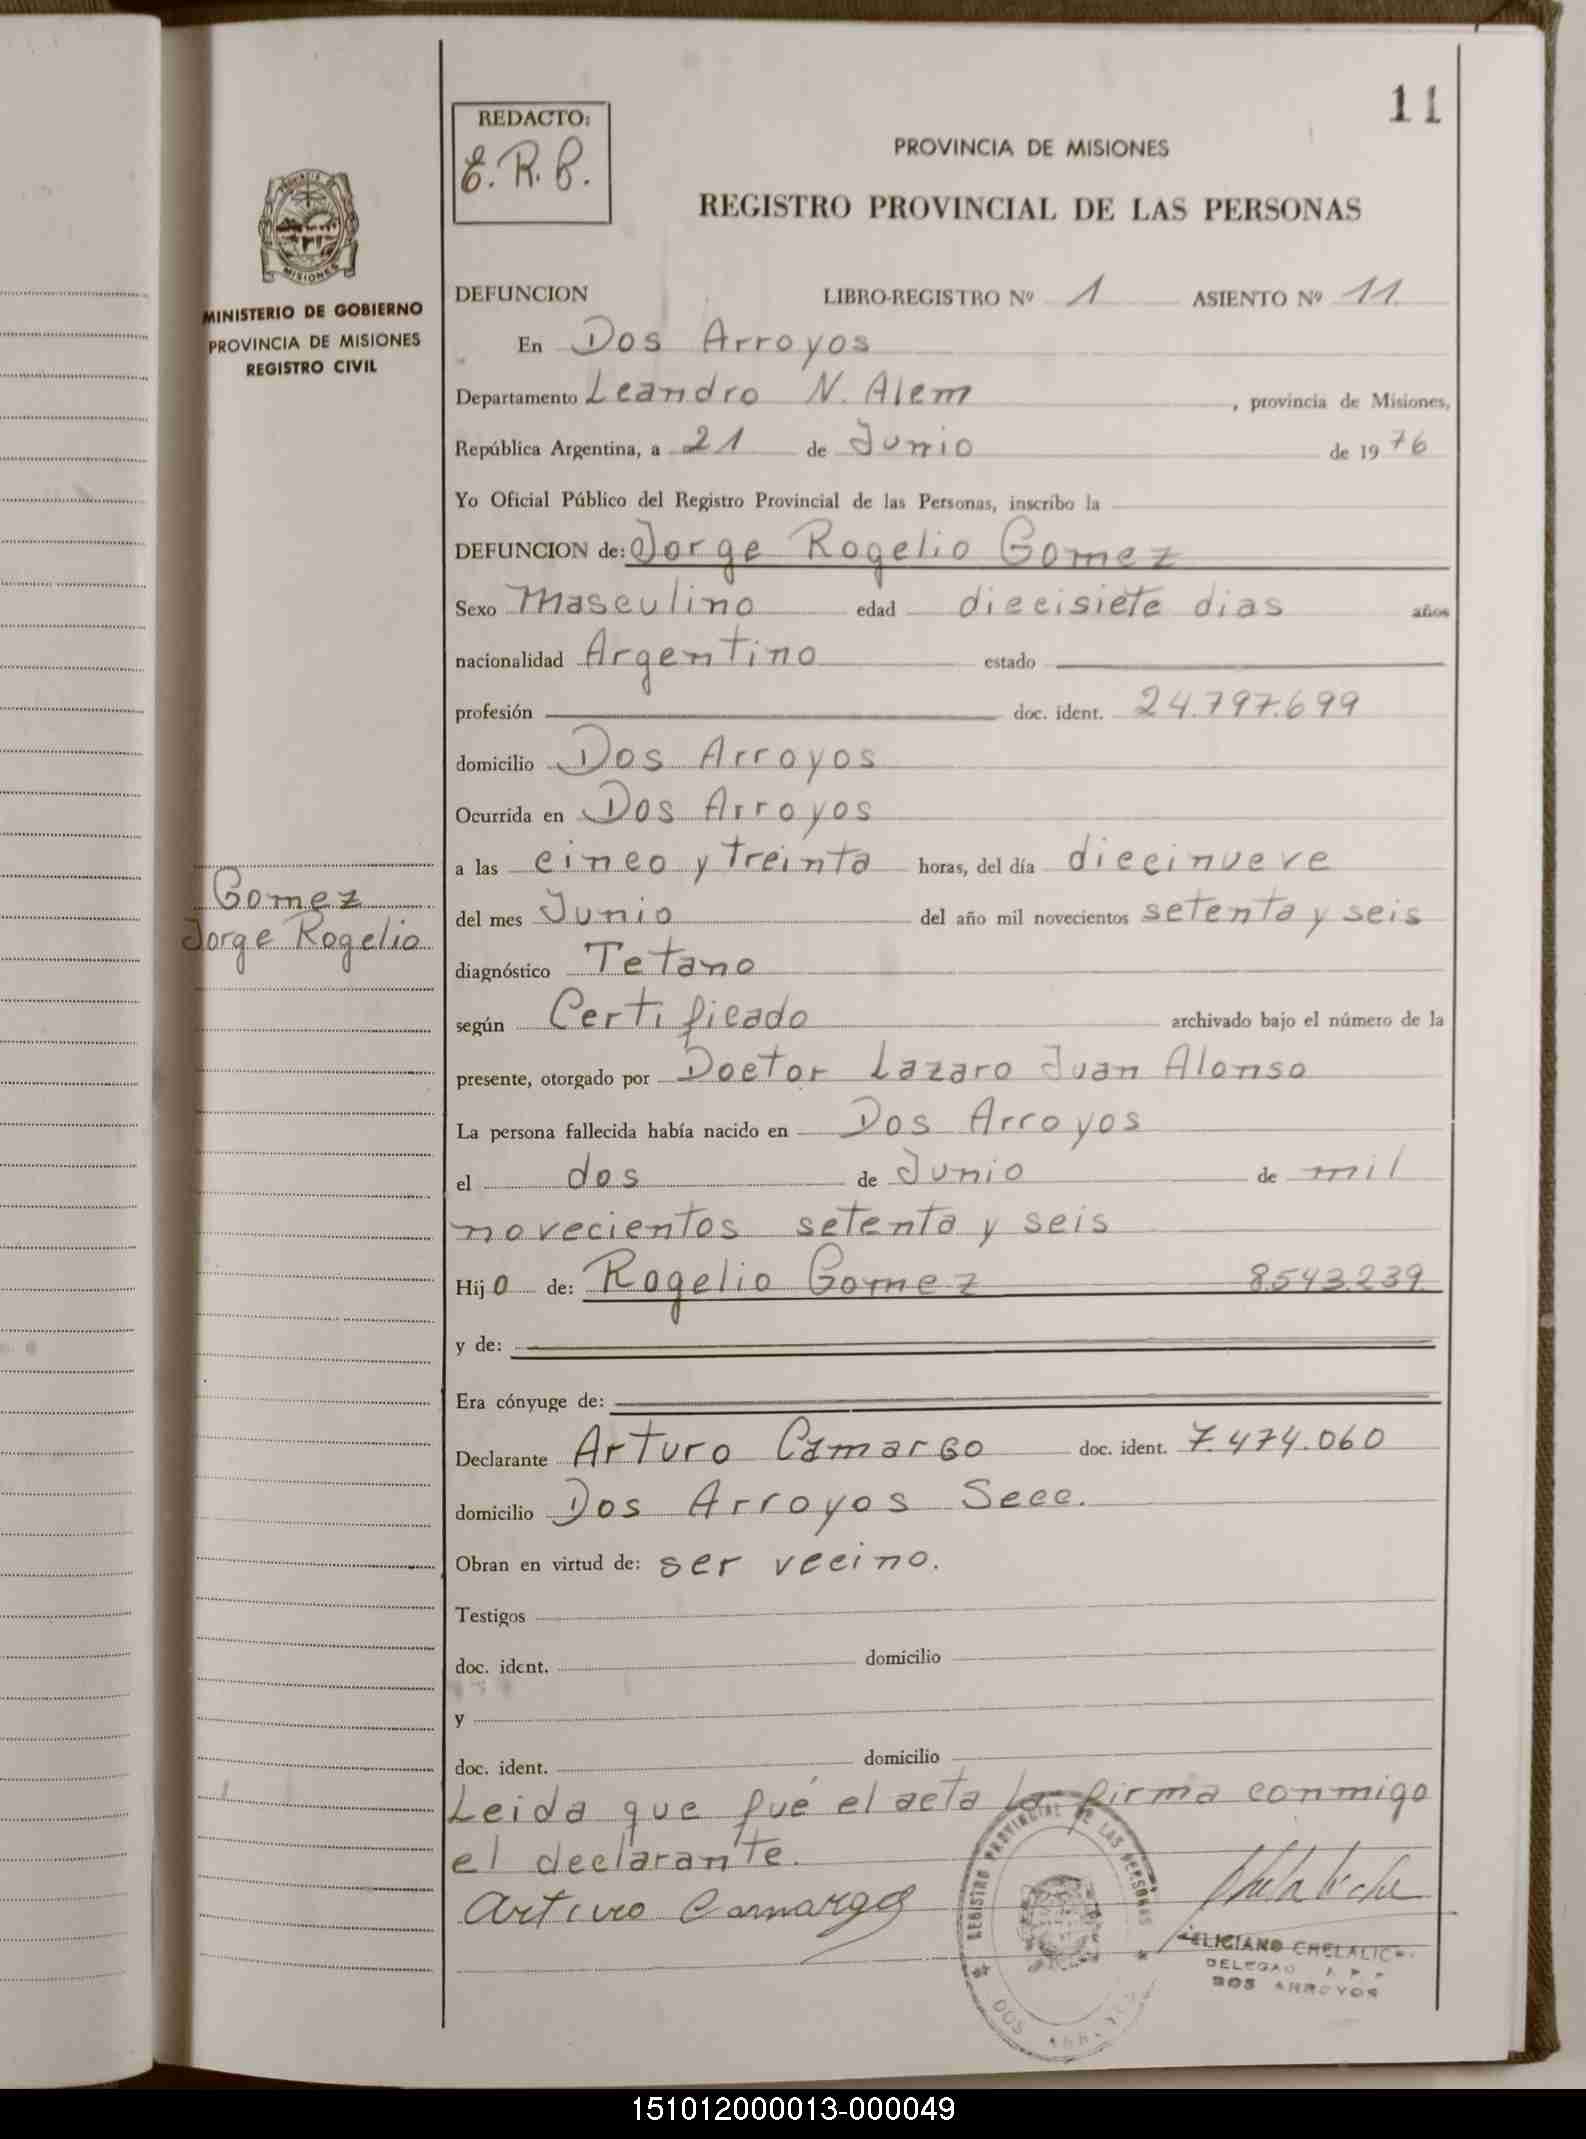 11
REDACTO:
E.R.B.
PROVINCIA DE MISIONES
REGISTRO PROVINCIAL DE LAS PERSONAS
MISIONES
MINISTERIO DE GOBIERNO
PROVINCIA DE MISIONES
REGISTRO CIVIL
DEFUNCION LIBRO-REGISTRO Nº 1 ASIENTO Nº 11
En Dos Arroyos
Departamento Leandro N. Alem, provincia de Misiones,
República Argentina, a 21 de Junio de 1976
Yo Oficial Público del Registro Provincial de las Personas, inscribo la
DEFUNCION de: Jorge Rogelio Gomez
Sexo Masculino edad diecisiete dias años
nacionalidad Argentino estado
profesión doc. ident. 24.797.699
domicilio Dos Arroyos
Ocurrida en Dos Arroyos
a las cinco y treinta horas, del día diecinueve
Gomez
Jorge Rogelio
del mes Junio del año mil novecientos setenta y seis
diagnóstico Tetano
según Certificado archivado bajo el número de la
presente, otorgado por Doctor Lazaro Juan Alonso
La persona fallecida había nacido en Dos Arroyos
el dos de Junio de mil
novecientos setenta y seis
Hijo de: Rogelio Gomez 8.543.239
y de:
Era cónyuge de:
Declarante Arturo Camargo doc. ident. 7.474.060
domicilio Dos Arroyos Secc.
Obran en virtud de: ser vecino.
Testigos
doc. ident. domicilio
y
doc. ident. domicilio
Leida que fué el acta la firma conmigo
el declarante.
Arturo Camargo
REGISTRO PROVINCIAL DE LAS PERSONAS
DOS ARROYOS
FELICIANO CHELALICHE
DOS ARROYOS
151012000013-000049